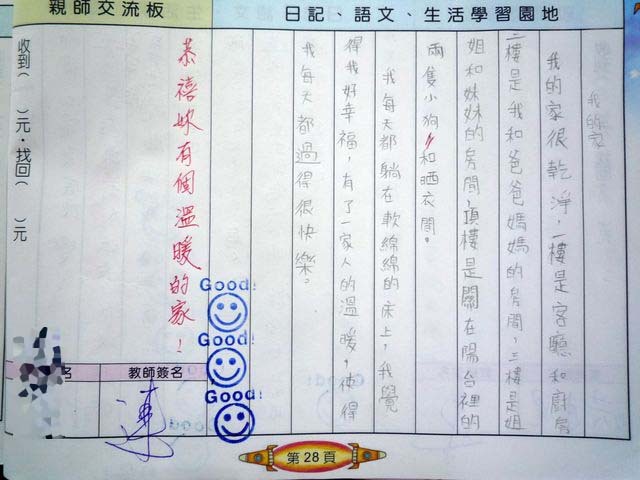 親師交流板
日記、語文、生活學習園地
我的家
我的家很乾淨,一樓是客廳和廚房
二樓是我和爸爸媽媽的房間,三樓是姐
姐和妹妹的房間,頂樓是關在陽台裡的
兩隻小狗和晒衣間。
我每天都躺在軟綿綿的床上,我覺
得我好幸福,有了一家人的溫暖,使得
我每天都過得很快樂。
恭禧妳有個溫暖的家!
收到( )元·找回( )元
Good!
Good!
Good!
名
教師簽名
連
第28頁